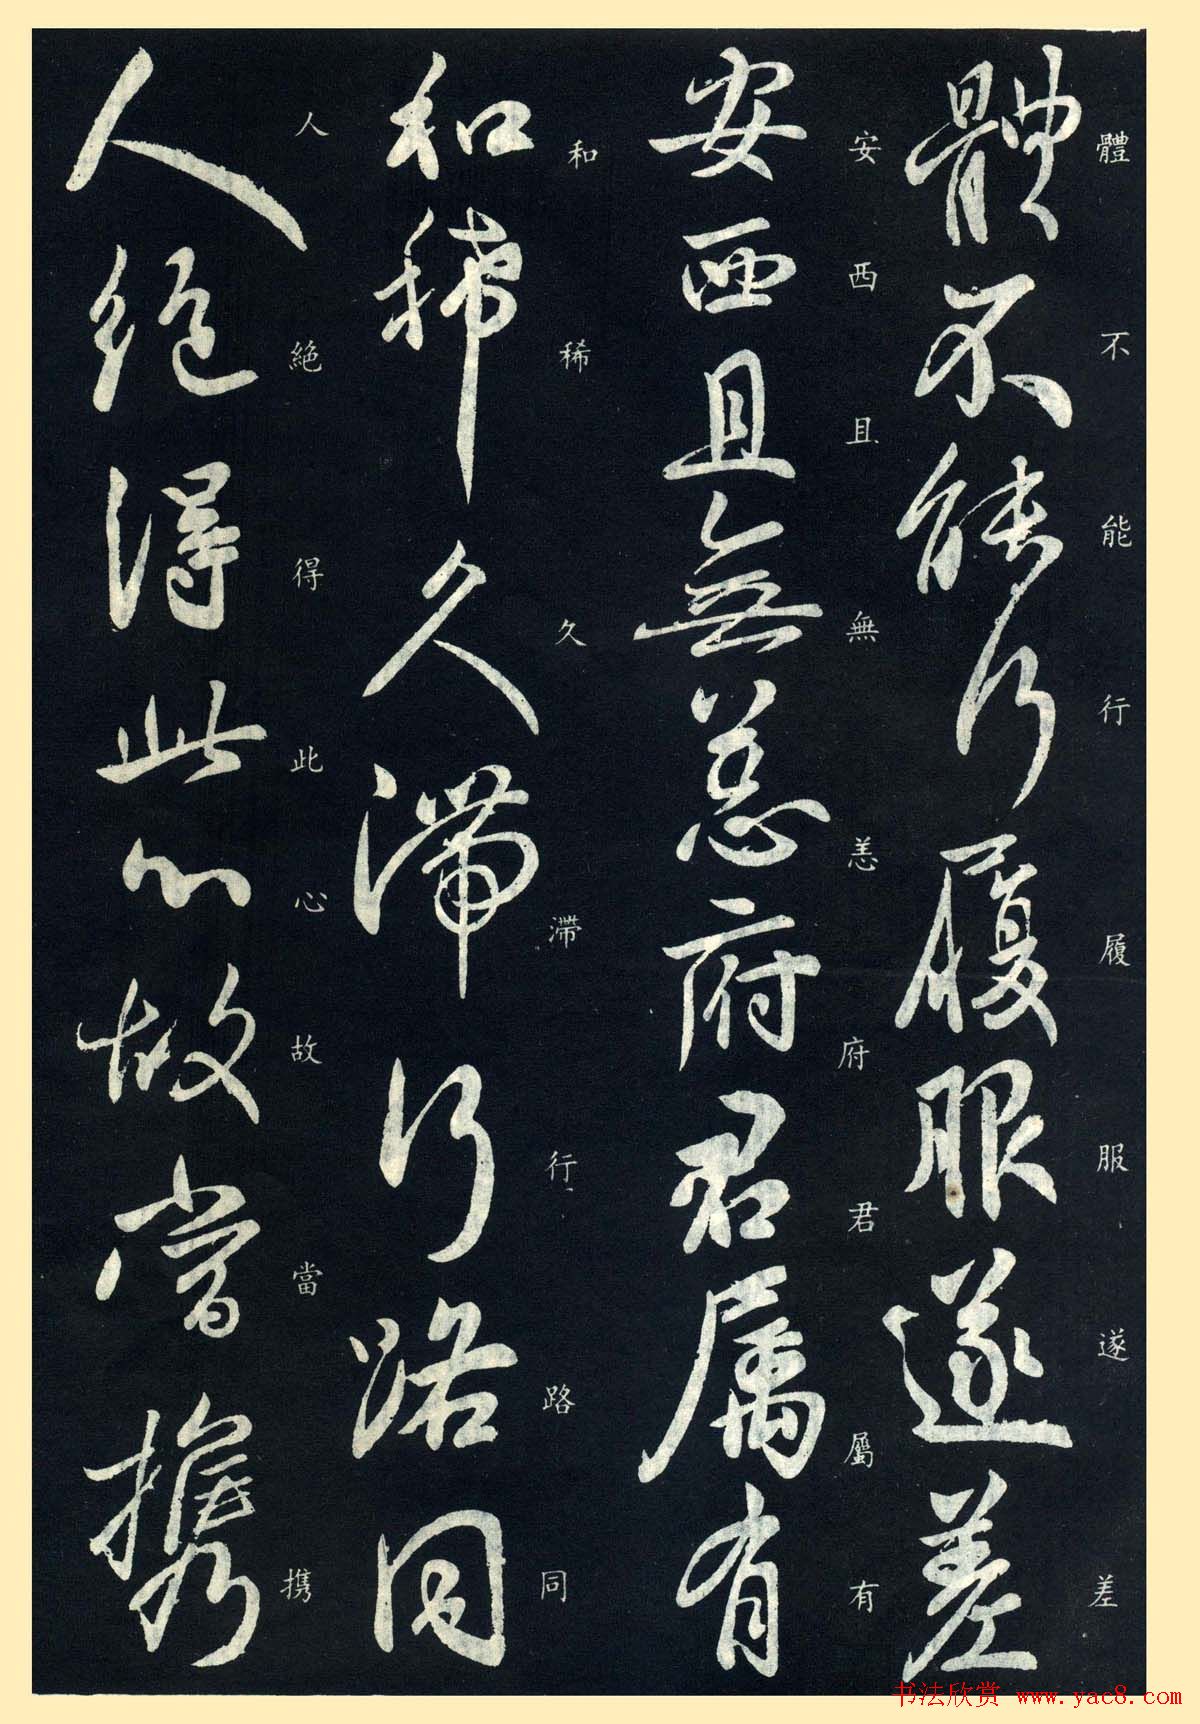 體不能行履服遂差
體不能行履服遂差
安西且無恙府君屬有
安西且無恙府君屬有
和稀久滯行路同
和稀久滯行路同
人絕得此心故當攜
人絕得此心故當携
书法欣赏 www.yac8.com